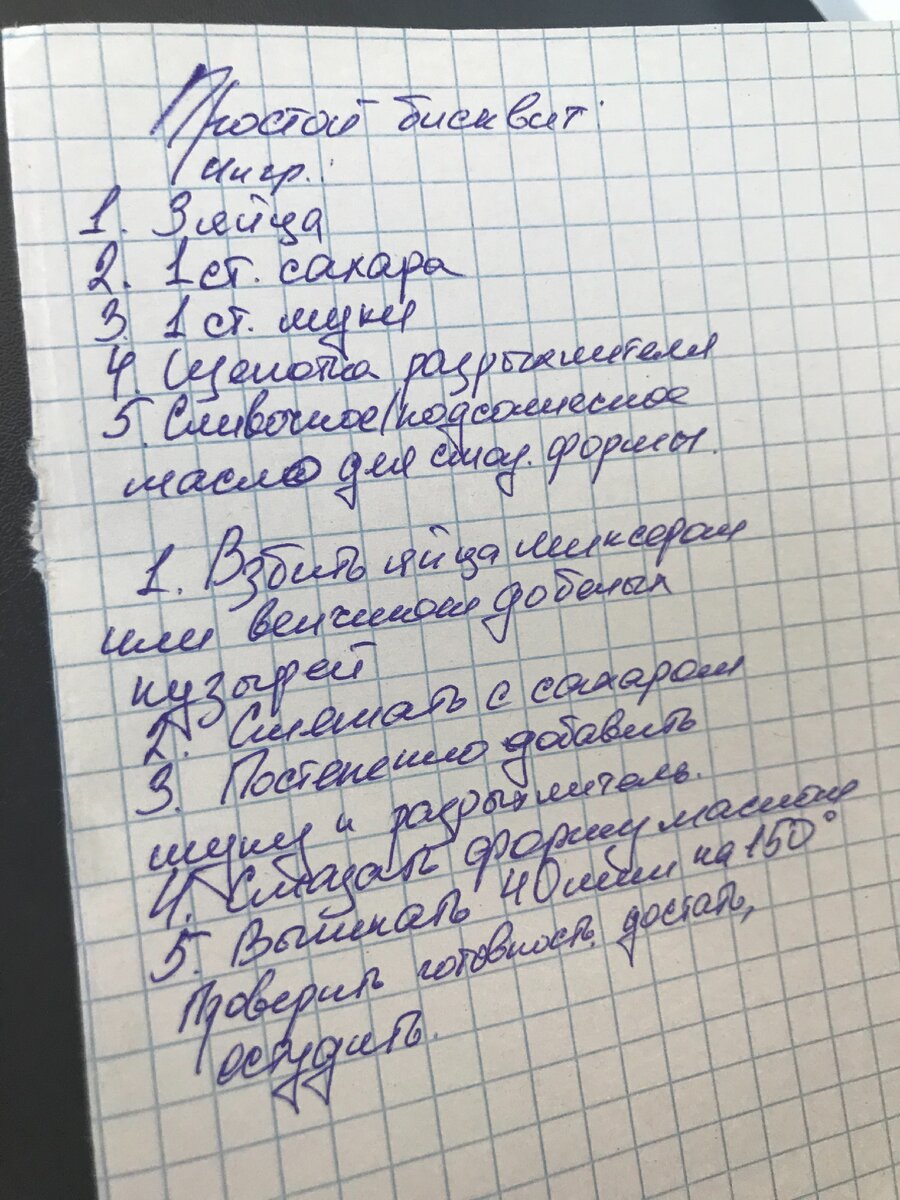 Простой бисквит:
Ингр.:
1. 3 яйца
2. 1 ст. сахара
3. 1 ст. муки
4. Щепотка разрыхлителя
5. Сливочное/подсолнесное
масло для смаз. формы.
1. Взбить яйца миксером
или венчиком до белых
пузырей
2. Смешать с сахаром
3. Постепенно добавить
муку и разрыхлитель.
4. Смазать форму маслом
5. Выпекать 40 мин на 150°
Проверить готовность, достать,
остудить.